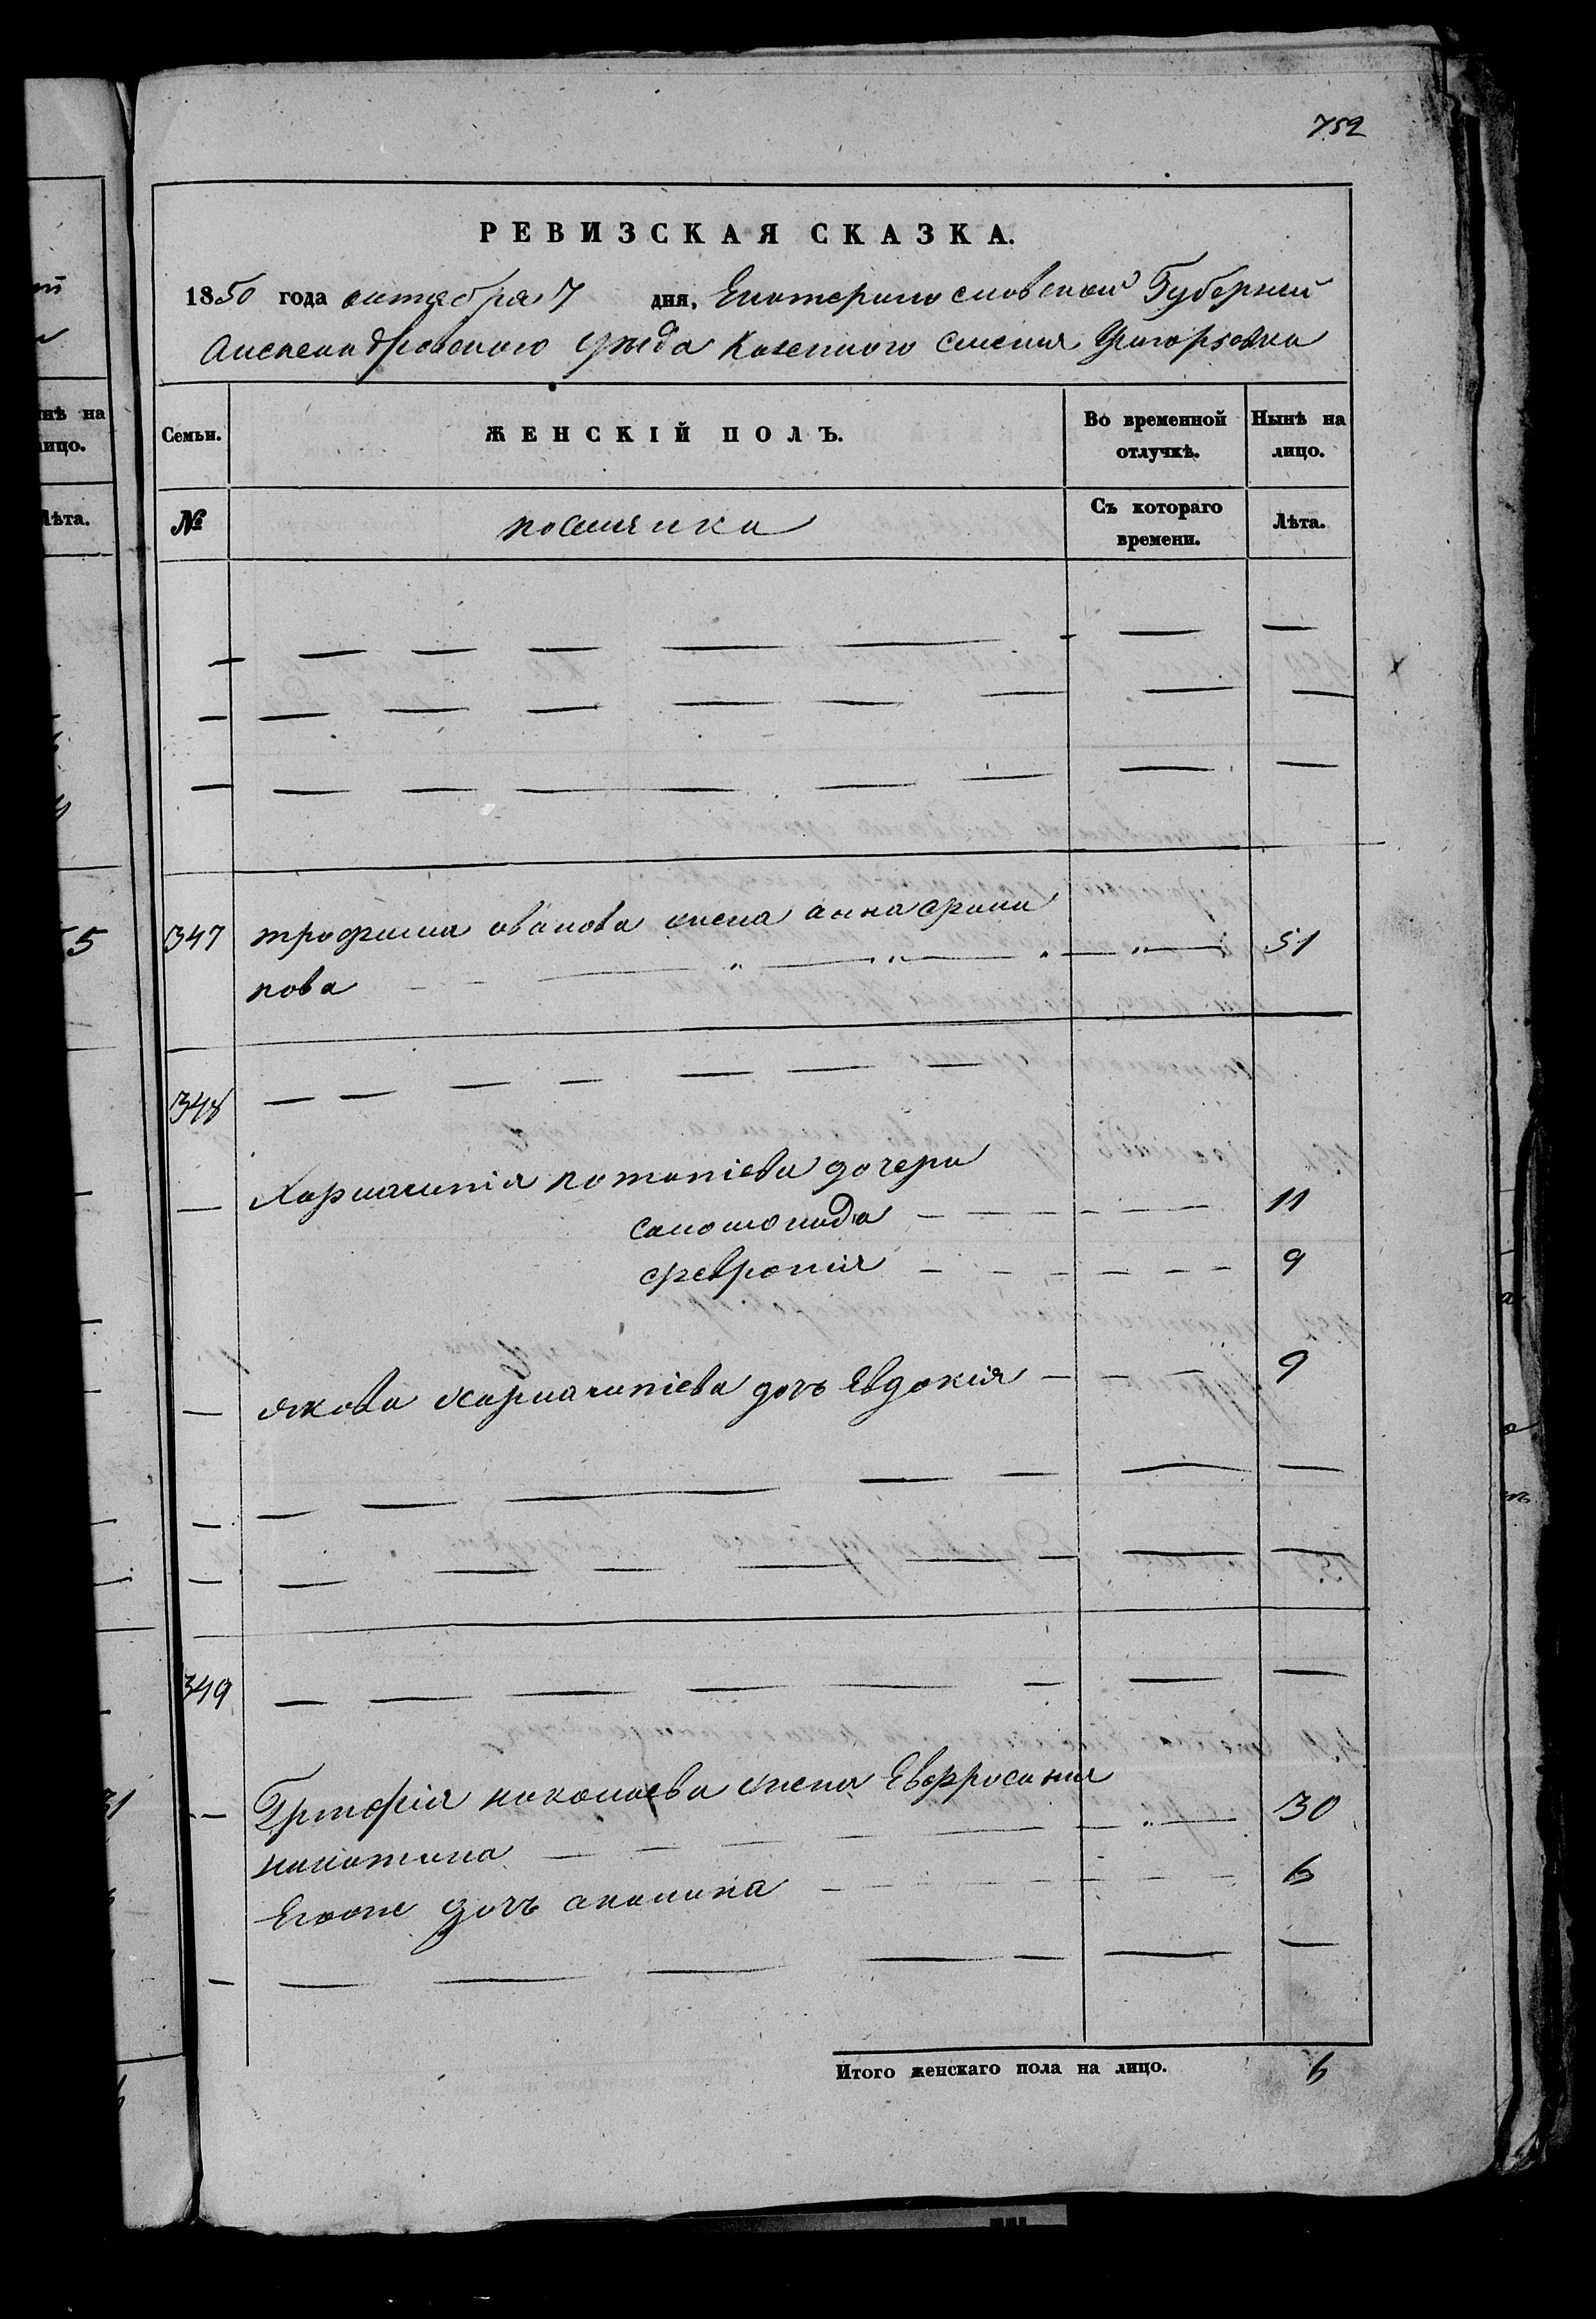 752
РЕВИЗСКАЯ СКАЗКА.
1850 года октября 7 дня, Екатеринославской Губернии
Александровского уезда Казенного селения Григорьевка
Семьи. ЖЕНСКІЙ ПОЛЪ. Во временной отлучкѣ. Нынѣ на лицо.
№ Съ котораго времени. Лѣта.
347 трофима иванова жена анна филипова 51
348
Харлампія потапіева дочери
соломонида 11
феврония 9
якова харлампіева дочь Евдокія 9
349
Григорія николаева жена Евфросиния 30
Егоже дочь акилина 6
Итого женскаго пола на лицо. 6